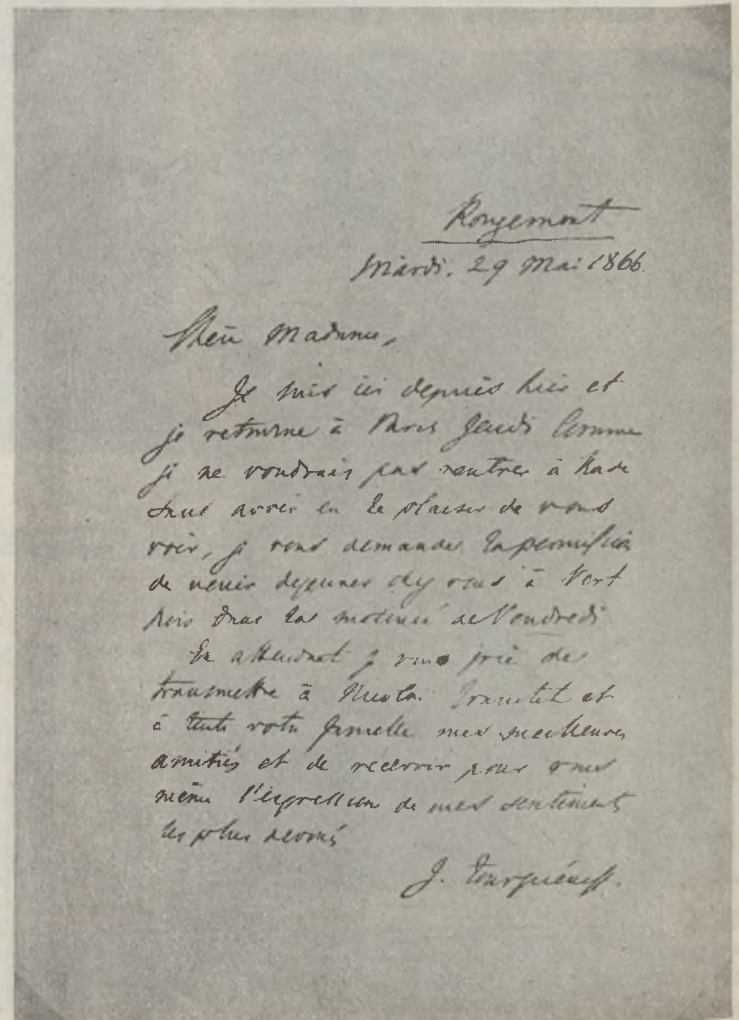 Rougemont
Mardi. 29 Mai 1866.
Chère Madame,
Je suis ici depuis hier et
je retourne à Paris Jeudi Comme
je ne voudrais pas rentrer à Bade
sans avoir eu le plaisir de vous
voir, je vous demande la permission
de venir dejeuner chez vous à Vert
bois dans la matinée de Vendredi
En attendant je vous prie de
transmettre à Nicolaï et
à toute votre famille mes meilleures
amitiés et de recevoir pour vous
même l'expression de mes sentiments
les plus devoués
J. Tourguéneff.